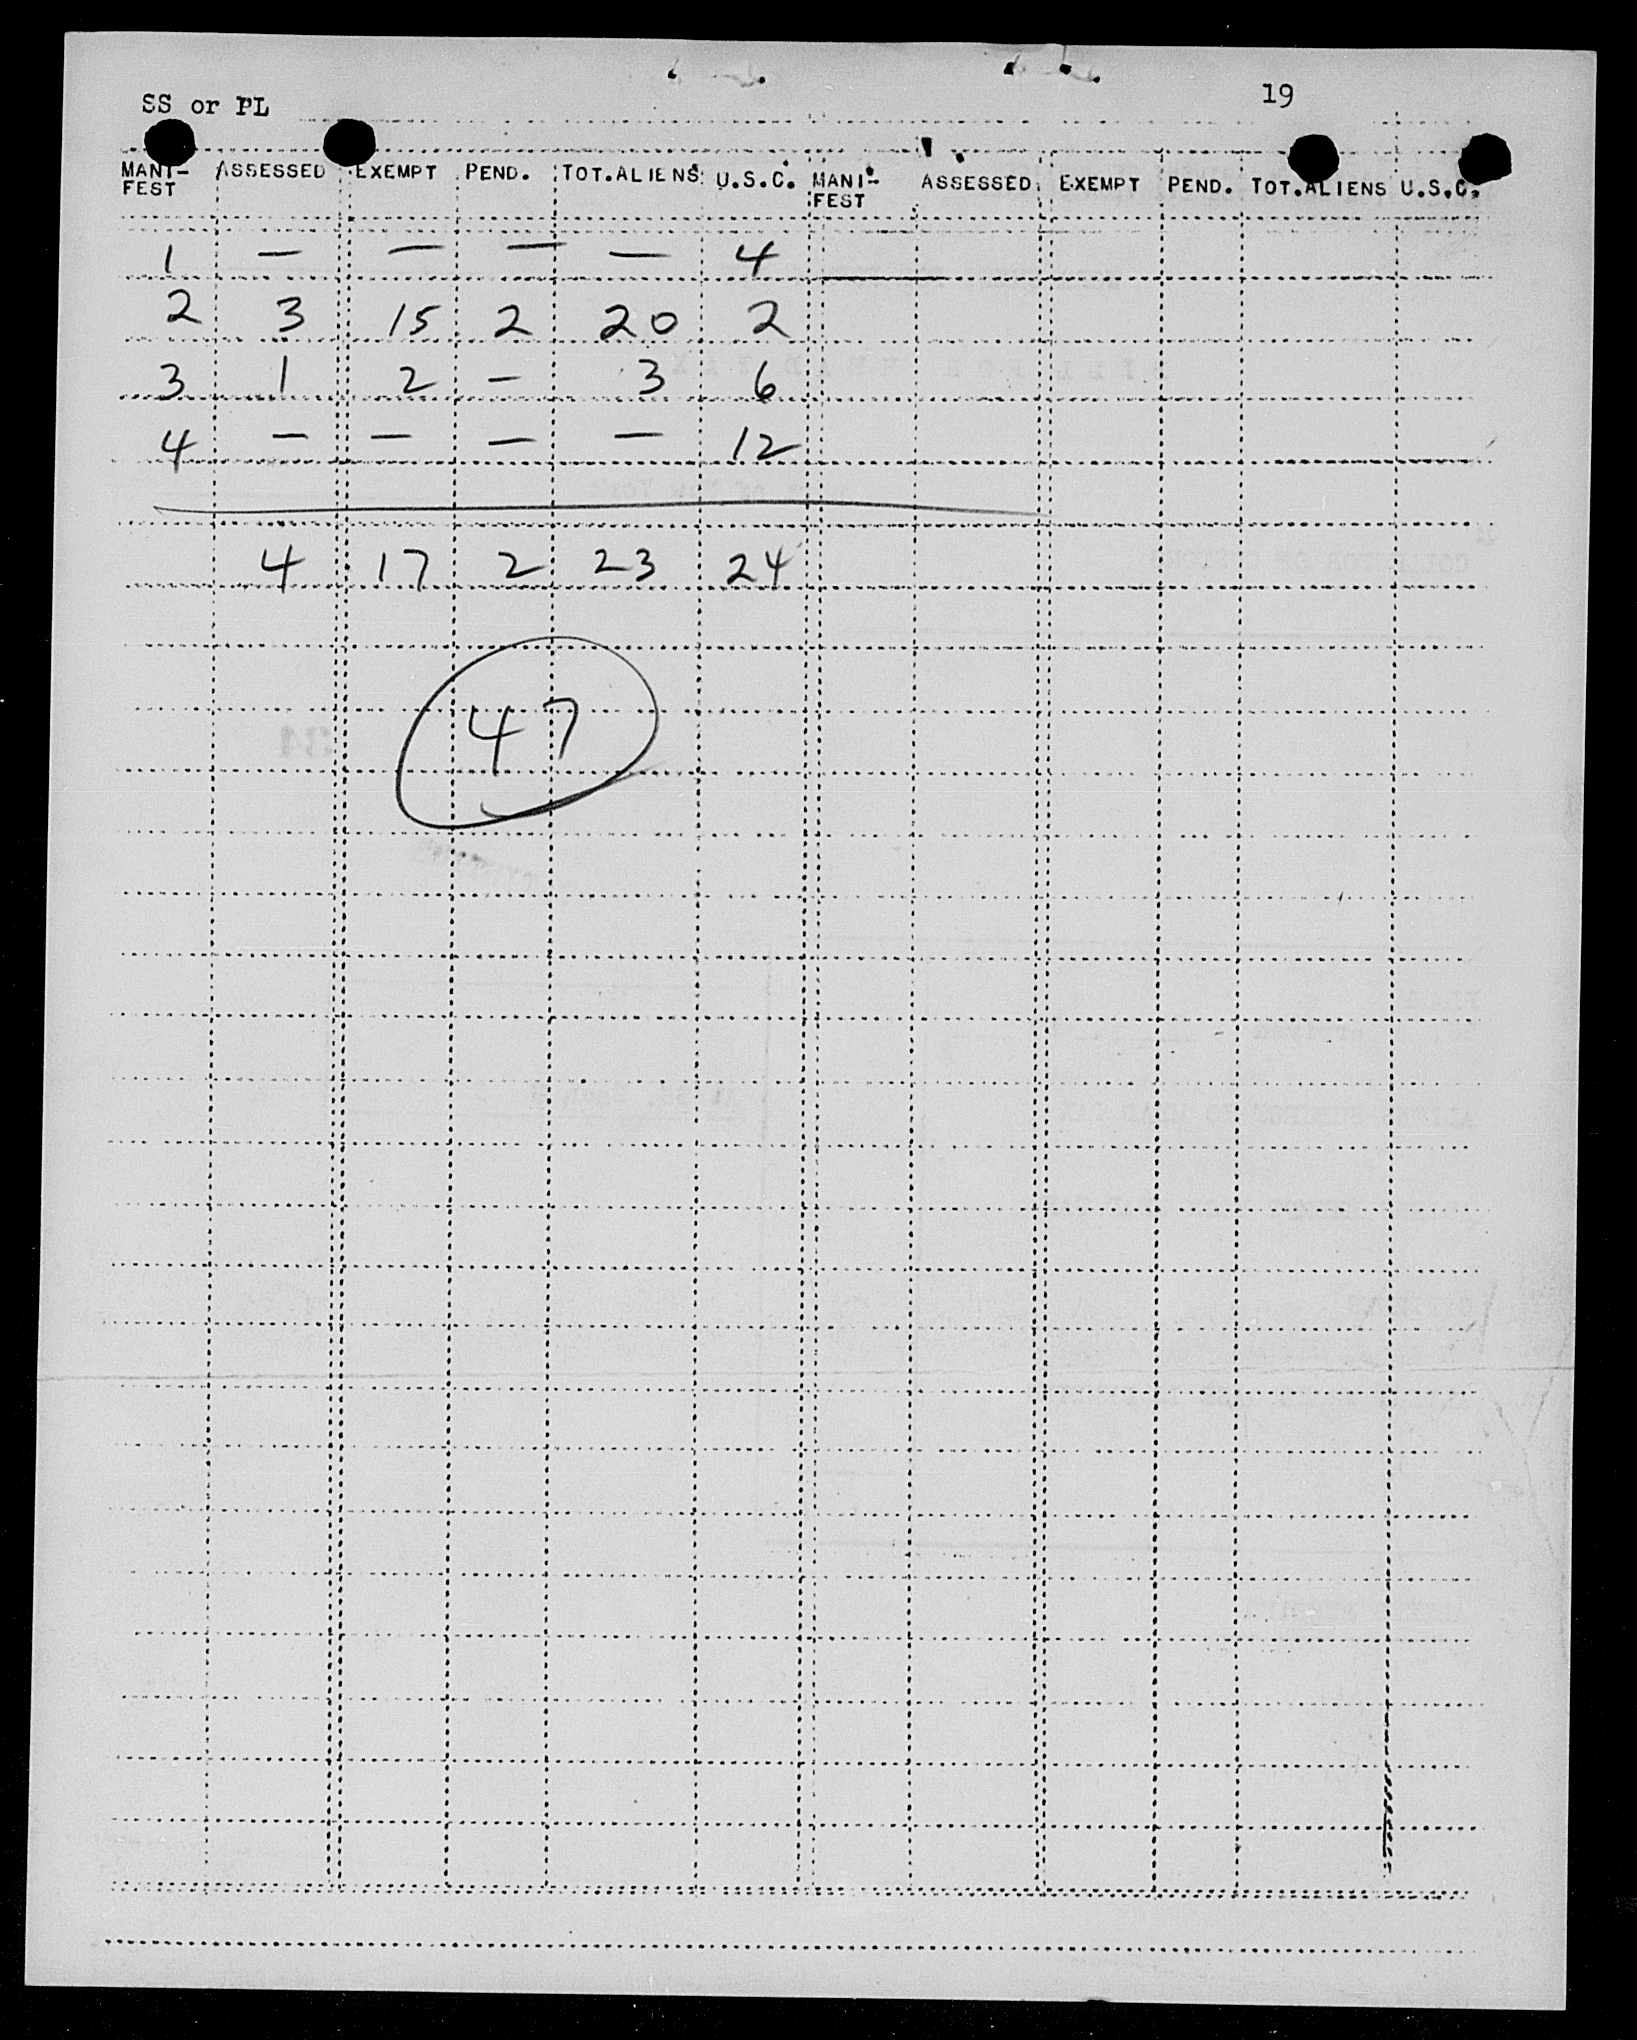 SS or PL 19
MANI- ASSESSED EXEMPT PEND. TOT.ALIENS U.S.C. MANI- ASSESSED EXEMPT PEND. TOT.ALIENS U.S.C.
FEST FEST
1 — — — — 4
2 3 15 2 20 2
3 1 2 — 3 6
4 — — — — 12
4 17 2 23 24
47